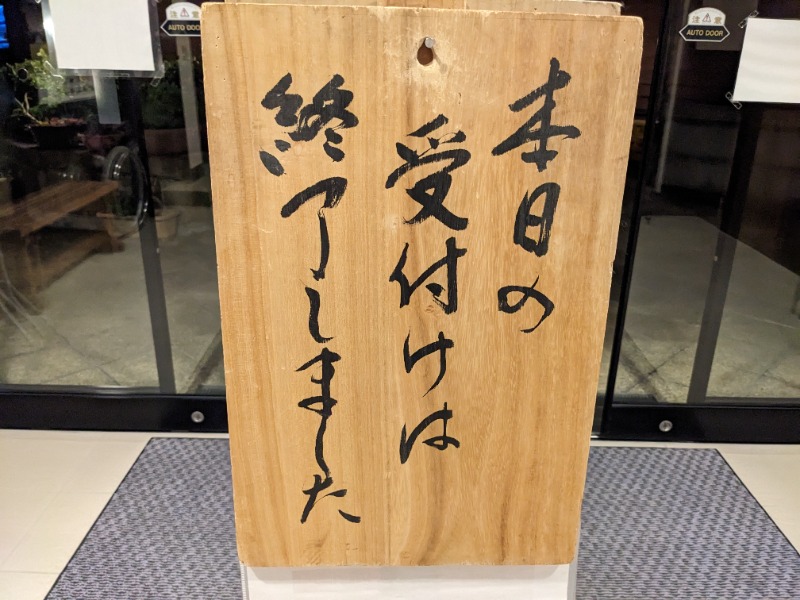 本日の
受付けは
終了しました
注意
AUTO DOOR
注意
AUTO DOOR